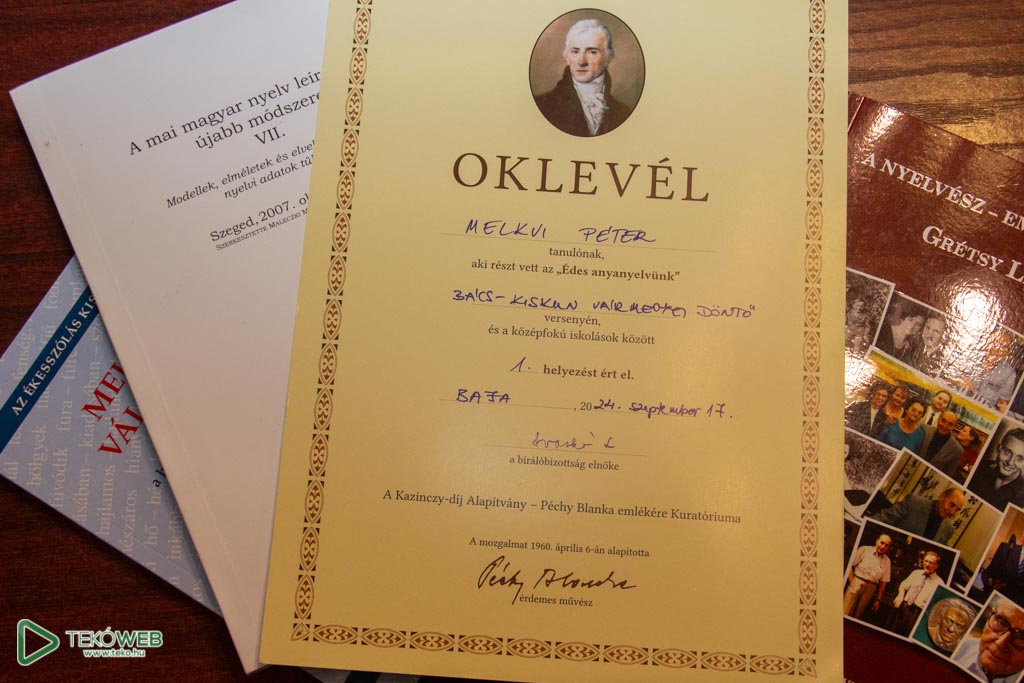 A mai magyar nyelv leír
újabb módszere
VII.
Modellek, elméletek és elve
nyelvi adatok tü
Szeged, 2007. ok
SZERKESZTETTE MALECZKI M
AZ ÉKESSZÓLÁS KIS
OKLEVÉL
MELKVI PÉTER
tanulónak,
aki részt vett az „Édes anyanyelvünk”
BÁCS-KISKUN VÁRMEGYEI DÖNTŐ
versenyén,
és a középfokú iskolások között
1. helyezést ért el.
BAJA, 2024. szeptember 17.
a bírálóbizottság elnöke
A Kazinczy-díj Alapítvány – Péchy Blanka emlékére Kuratóriuma
A mozgalmat 1960. április 6-án alapította
Péchy Blanka
érdemes művész
A NYELVÉSZ – EM
GRÉTSY L
TEKÓWEB
www.teko.hu